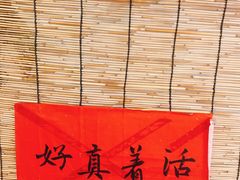 好真着活